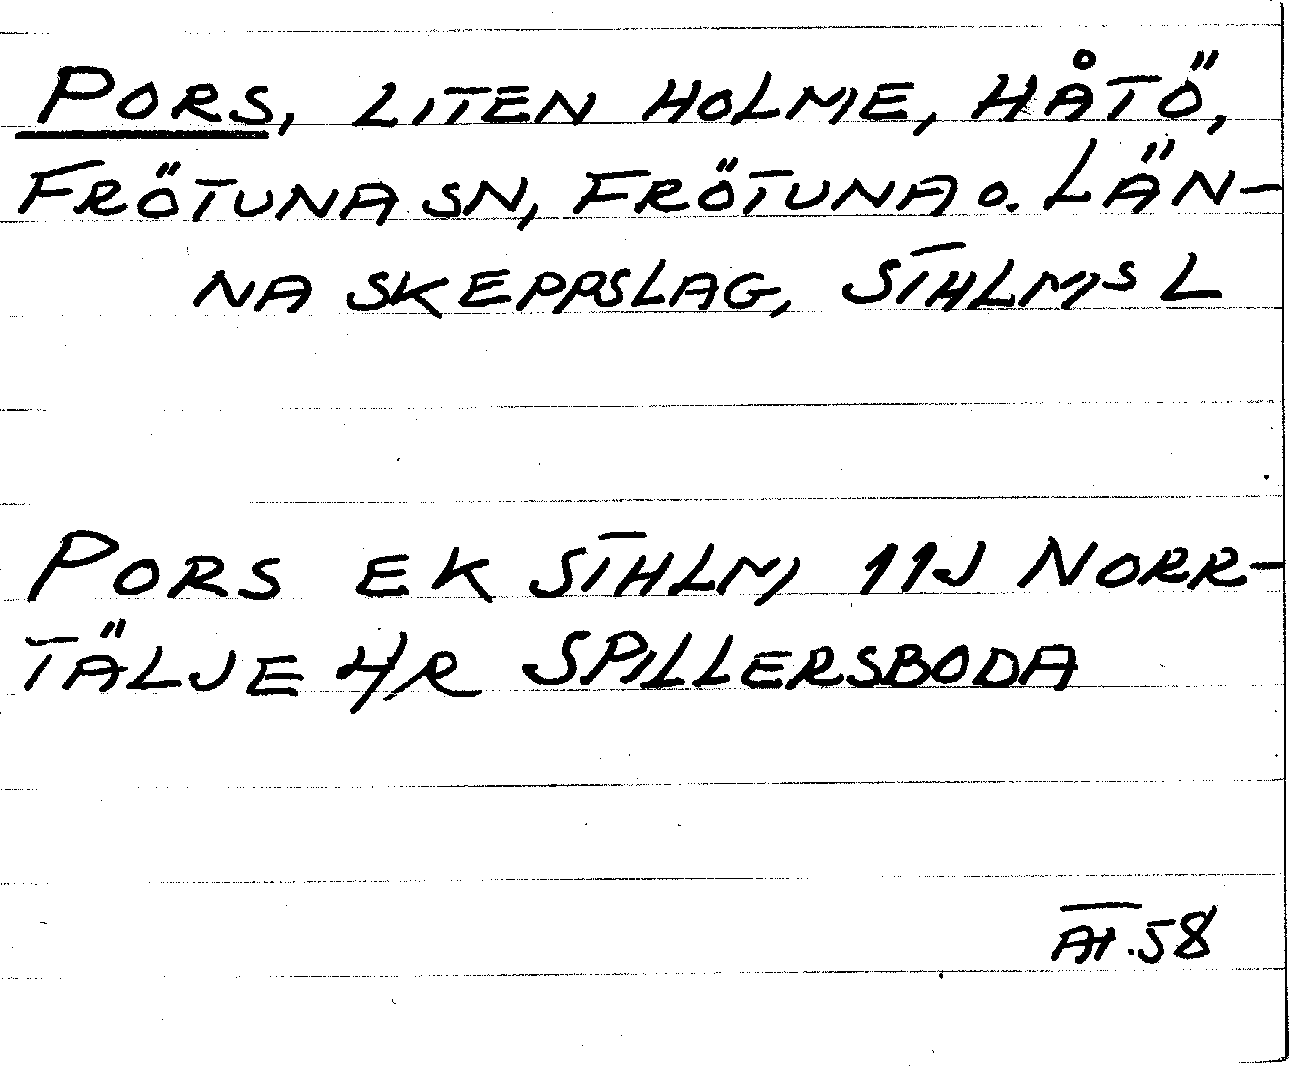 PORS, LITEN HOLME, HÅTÖ,
FRÖTUNA SN, FRÖTUNA O. LÄN-
NA SKEPPSLAG, STHLMS L
PORS EK STHLM 11J NORR-
TÄLJE 4/R SPILLERSBODA
AT.58